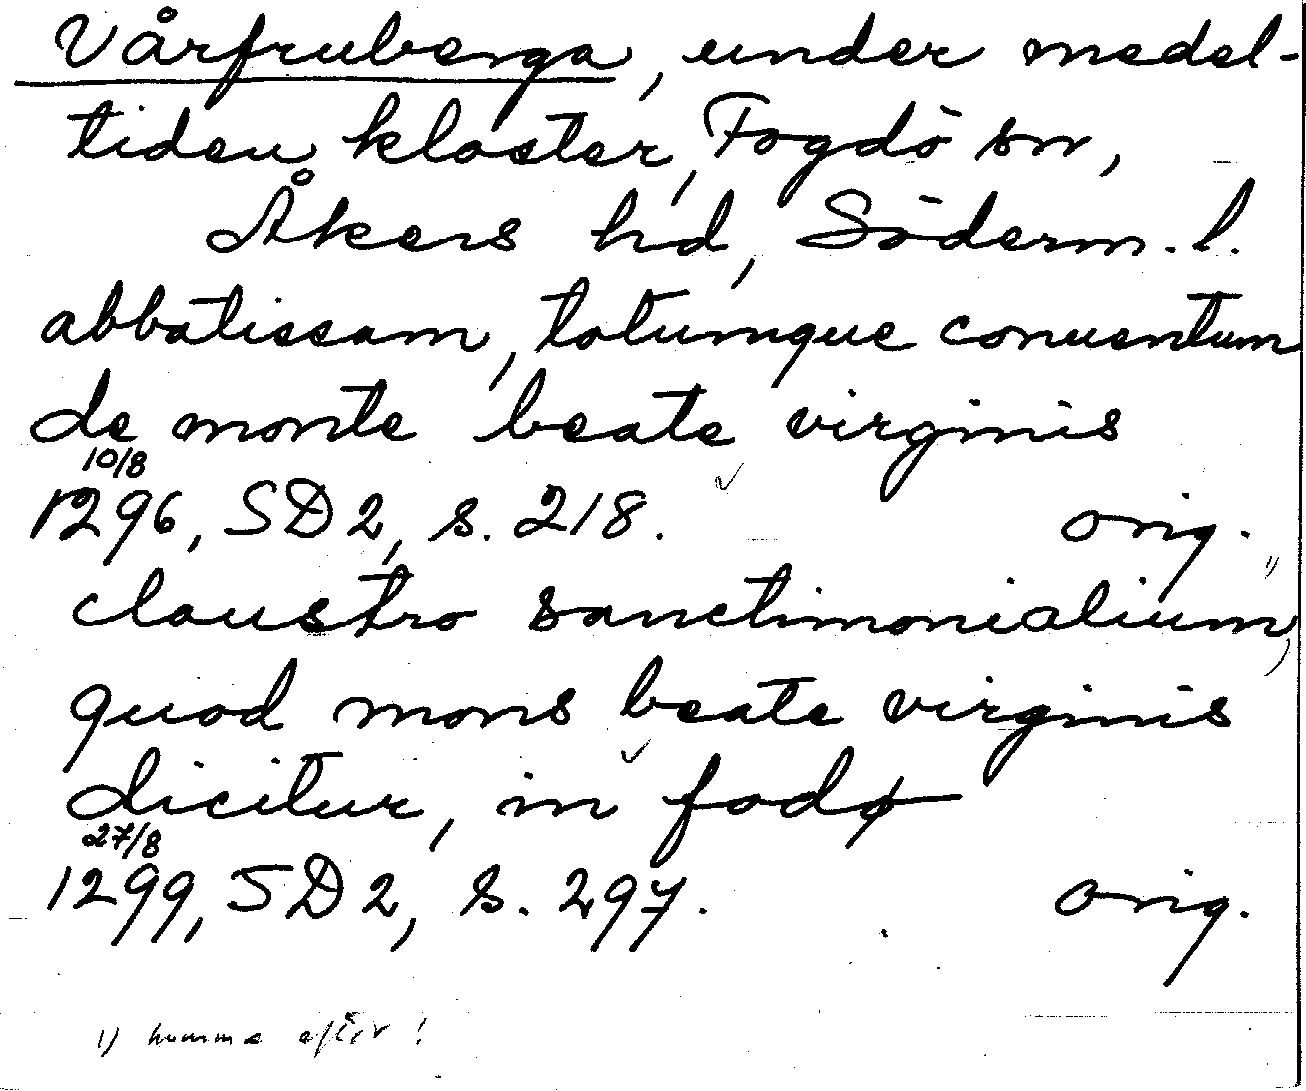 Vårfruberga, under medel-
tiden kloster, Fogdö sn,
Åkers hd, Söderm. l.
abbatissam, totumque conuentum
de monte beate virginis
10/8
1296, SD 2, s. 218. orig.
claustro sanctimonialium, 1)
quod mons beate virginis
dicitur, in fodø
27/8
1299, SD 2, s. 297. orig.
1) komma efter!